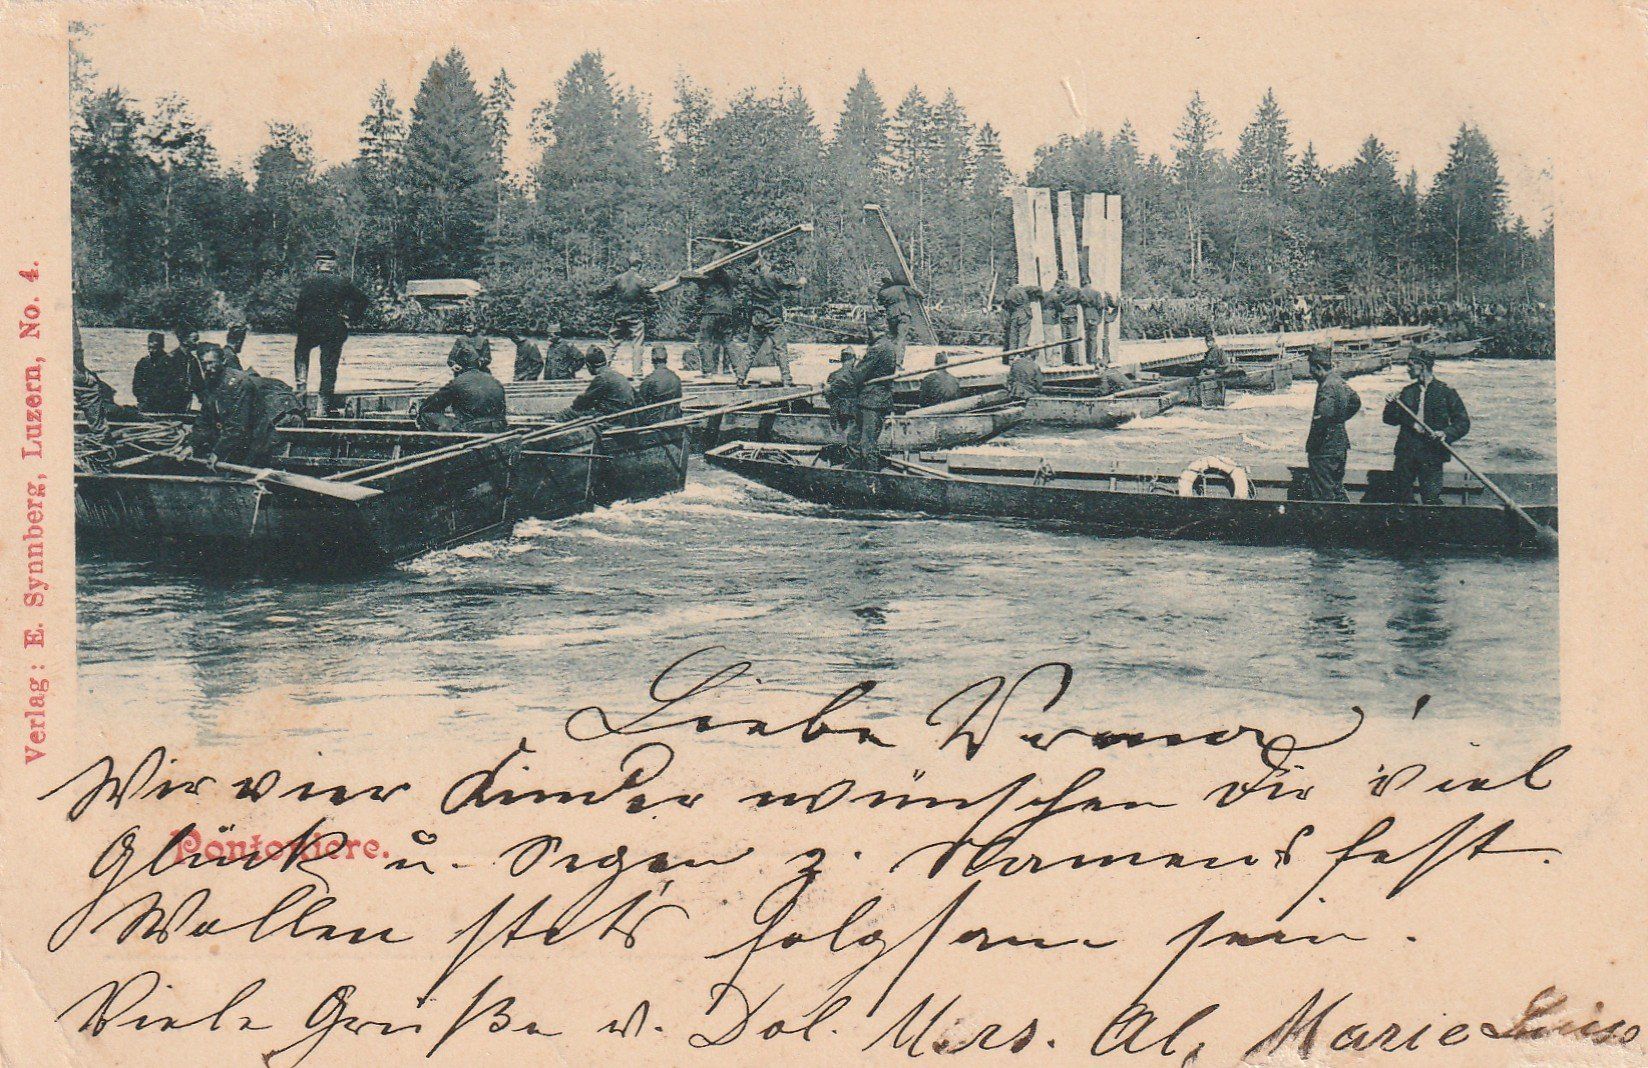 Verlag: E. Synnberg, Luzern, No. 4.
Liebe
Wir vier Kinder wünschen Dir viel
Pontoniere.
Glück u. Segen z. Namensfest.
Wollen stets folgsam sein.
Viele Grüße v. Dol. Mrs. Al, Marie Luise